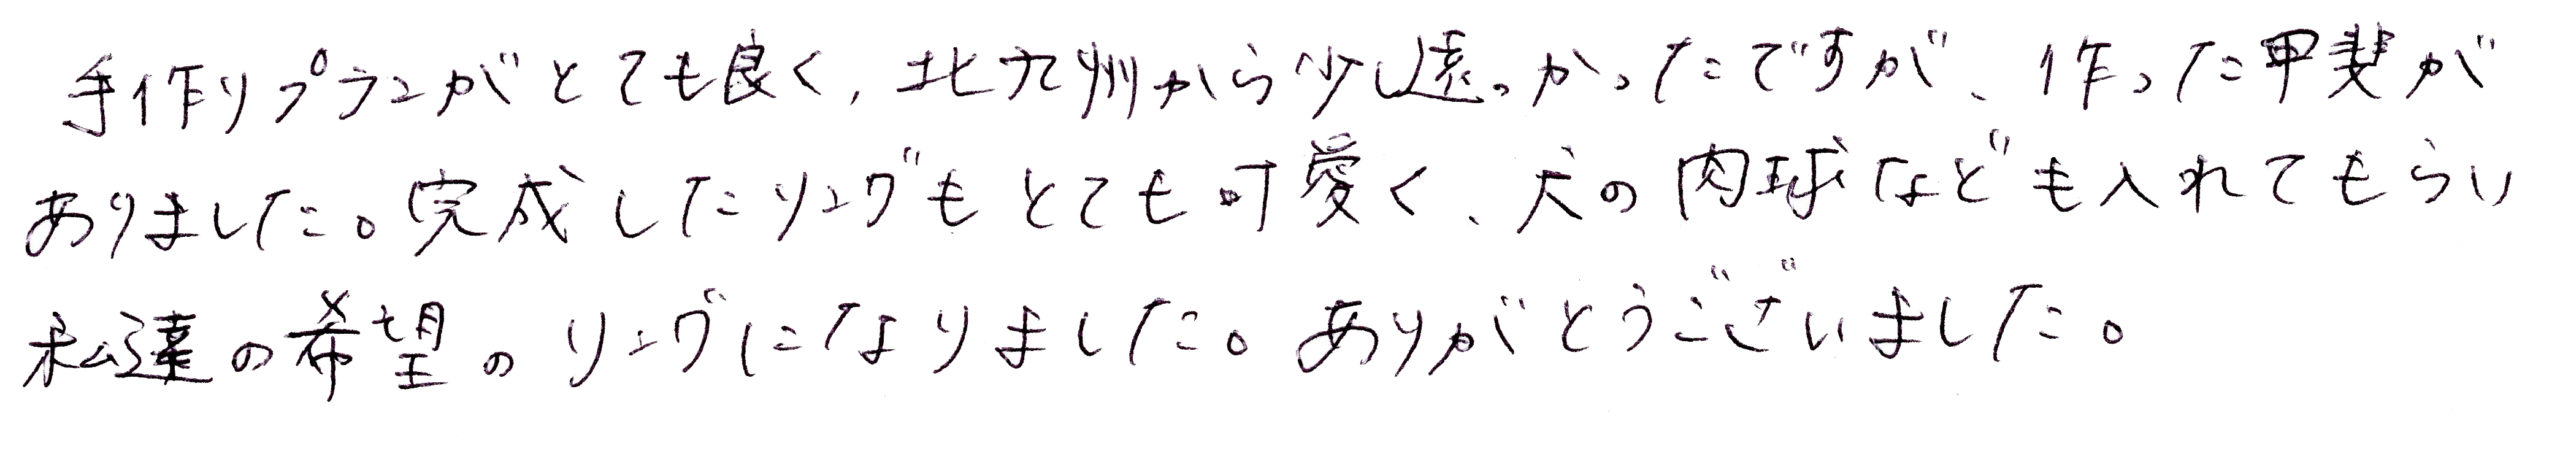 手作りプランがとても良く、北九州から少し遠かったですが、作った甲斐が
ありました。完成したリングもとても可愛く、犬の肉球なども入れてもらい
私達の希望のリングになりました。ありがとうございました。